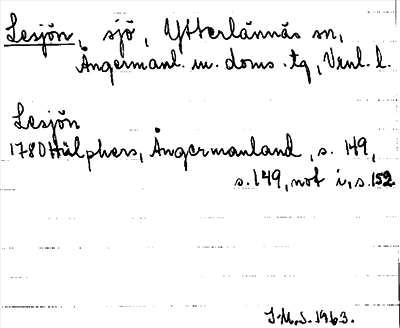 Lesjön, sjö, Ytterlännäs sn,
Ångermanl. m. doms. tg, Vnl. l.
Lesjön
1780 Hülphers, Ångermanland, s. 149,
s. 149, not i, s. 152.
I.M.S. 1963.